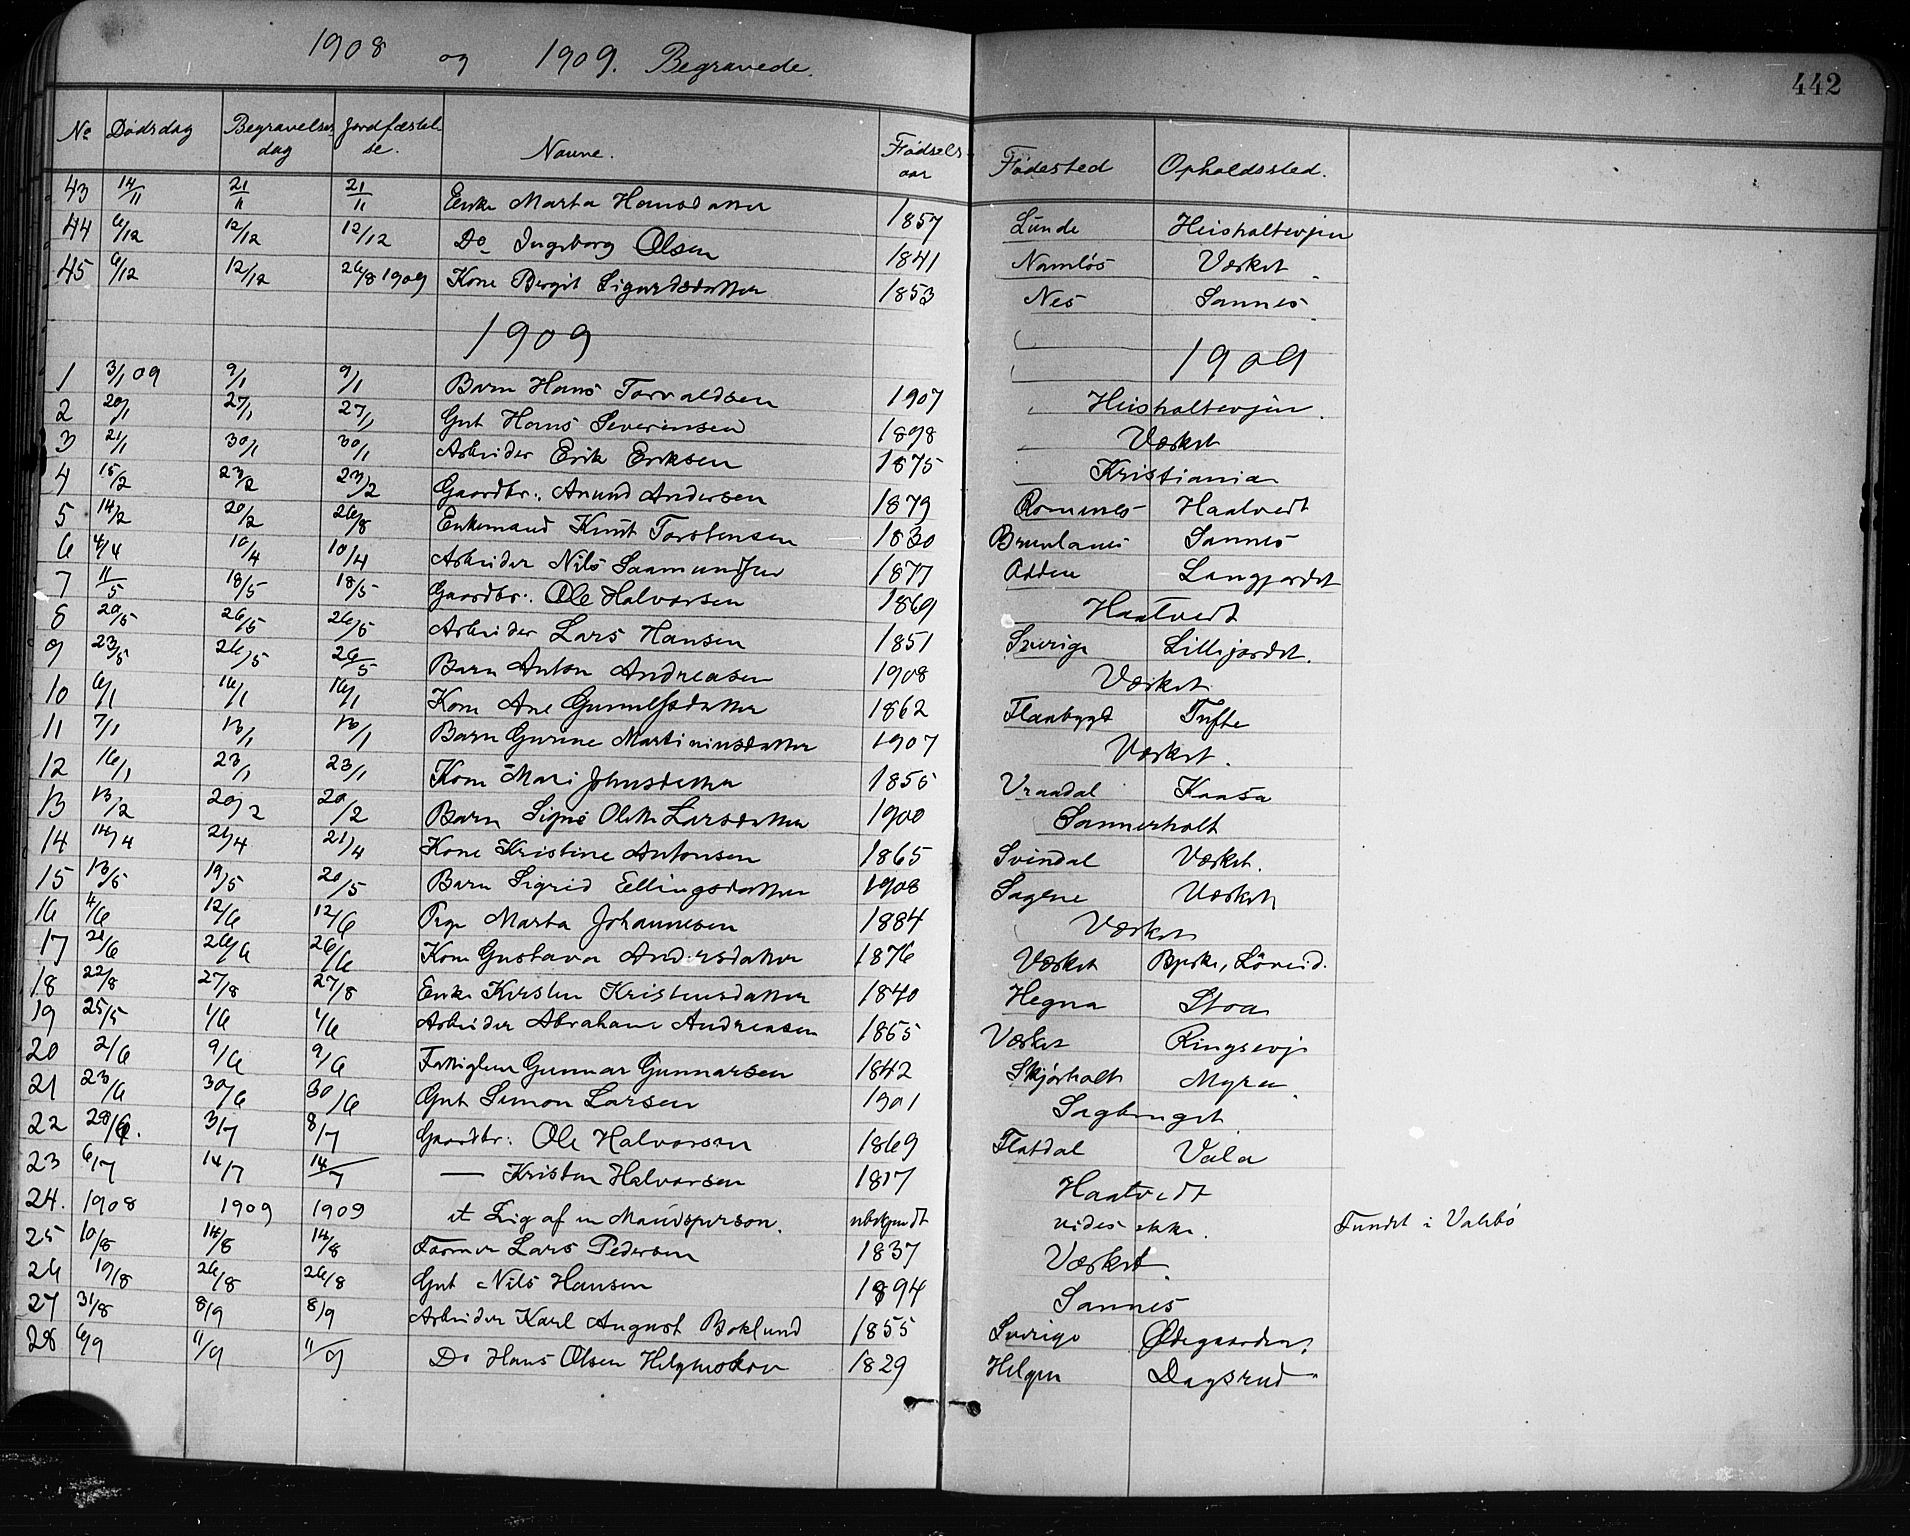 1908 og 1909. Begravede.
442
No Dødsdag Begravelses dag Jordfæstel se. Navne. Fødsels aar Födested Opholdssted.
43 14/11 21/11 21/11 Enke Marta Hansdatter 1857 Lunde Heisholtevjen
44 6/12 12/12 12/12 Do Ingeborg Olsen 1841 Namløs Værket
45 6/12 12/12 26/8 1909 Kone Bergit Sigurdsdatter 1853 Nes Sannes
1909 1909
1 3/1 09 9/1 9/1 Barn Hans Torvaldsen 1907 Heisholtevjen.
2 20/1 27/1 27/1 Gut Hans Severinsen 1898 Værket
3 21/1 30/1 30/1 Arbeider Erik Eriksen 1875 Kristiania
4 15/2 23/2 23/2 Gaardbr.. Anund Andersen 1879 Romnes Haatvedt
5 14/2 20/2 26/8 Enkemand Knut Torstensen 1830 Brunlanes Sannes
6 4/4 10/4 10/4 Arbeider Nils Saamundsen 1877 Odden Langjordet
7 11/5 18/5 18/5 Gaardbr.. Ole Halvorsen 1869 Haatvedt
8 20/5 26/5 26/5 Arbeider Lars Hansen 1851 Sverige Lillejordet.
9 23/5 26/5 26/5 Barn Anton Andreasen 1908 Værket
10 6/1 16/1 16/1 Kone Ane Gunulfsdatter 1862 Flaabygd Tufte
11 7/1 13/1 13/1 Barn Gurine Martiniusdatter 1907 Værket.
12 16/1 23/1 23/1 Kone Mari Johnsdatter 1855 Vraadal Kaasa
13 13/2 20/2 20/2 Barn Signe Olette Larsdatter 1900 Sannerholt
14 14/4 21/4 21/4 Kone Kristine Antonsen 1865 Svindal Værket.
15 13/5 19/5 20/5 Barn Sigrid Ellingsdatter 1908 Sagene Værket
16 4/6 12/6 12/6 Pige Marta Johannesen 1884 Værket
17 21/6 26/6 26/6 Kone Gustava Andersdatter 1876 Værket Bjerke, Löveid.
18 22/8 27/8 27/8 Enke Kirsten Kristensdatter 1840 Hegna Stoa
19 25/5 1/6 1/6 Arbeider Abraham Andreasen 1865 Værket Ringsevje
20 2/6 9/6 9/6 Fattiglem Gunnar Gunnarsen 1842 Skjørholt Myra
21 23/6 30/6 30/6 Gut Simon Larsen 1901 Sagbruget
22 28/6. 3/7 8/7 Gaardbr: Ole Halvorsen 1869 Flatdal Vala
23 6/7 14/7 14/7 — Kristen Halvorsen 1817 Haatvedt
24. 1908 1909 1909 et Lig af en Mandsperson. ubekjendt vides ikke. Fundet i Valebö
25 10/8 14/8 14/8 Farmer Lars Pedersen 1837 Værket
26 19/8 26/8 26/8 Gut Nils Hansen 1894 Sannes
27 31/8 8/9 8/9 Arbeider Karl August Boklund 1855 Sverige Ødegaarden,
28 6/9 11/9 11/9 Do Hans Olsen 1829 Helgen Dagsrud